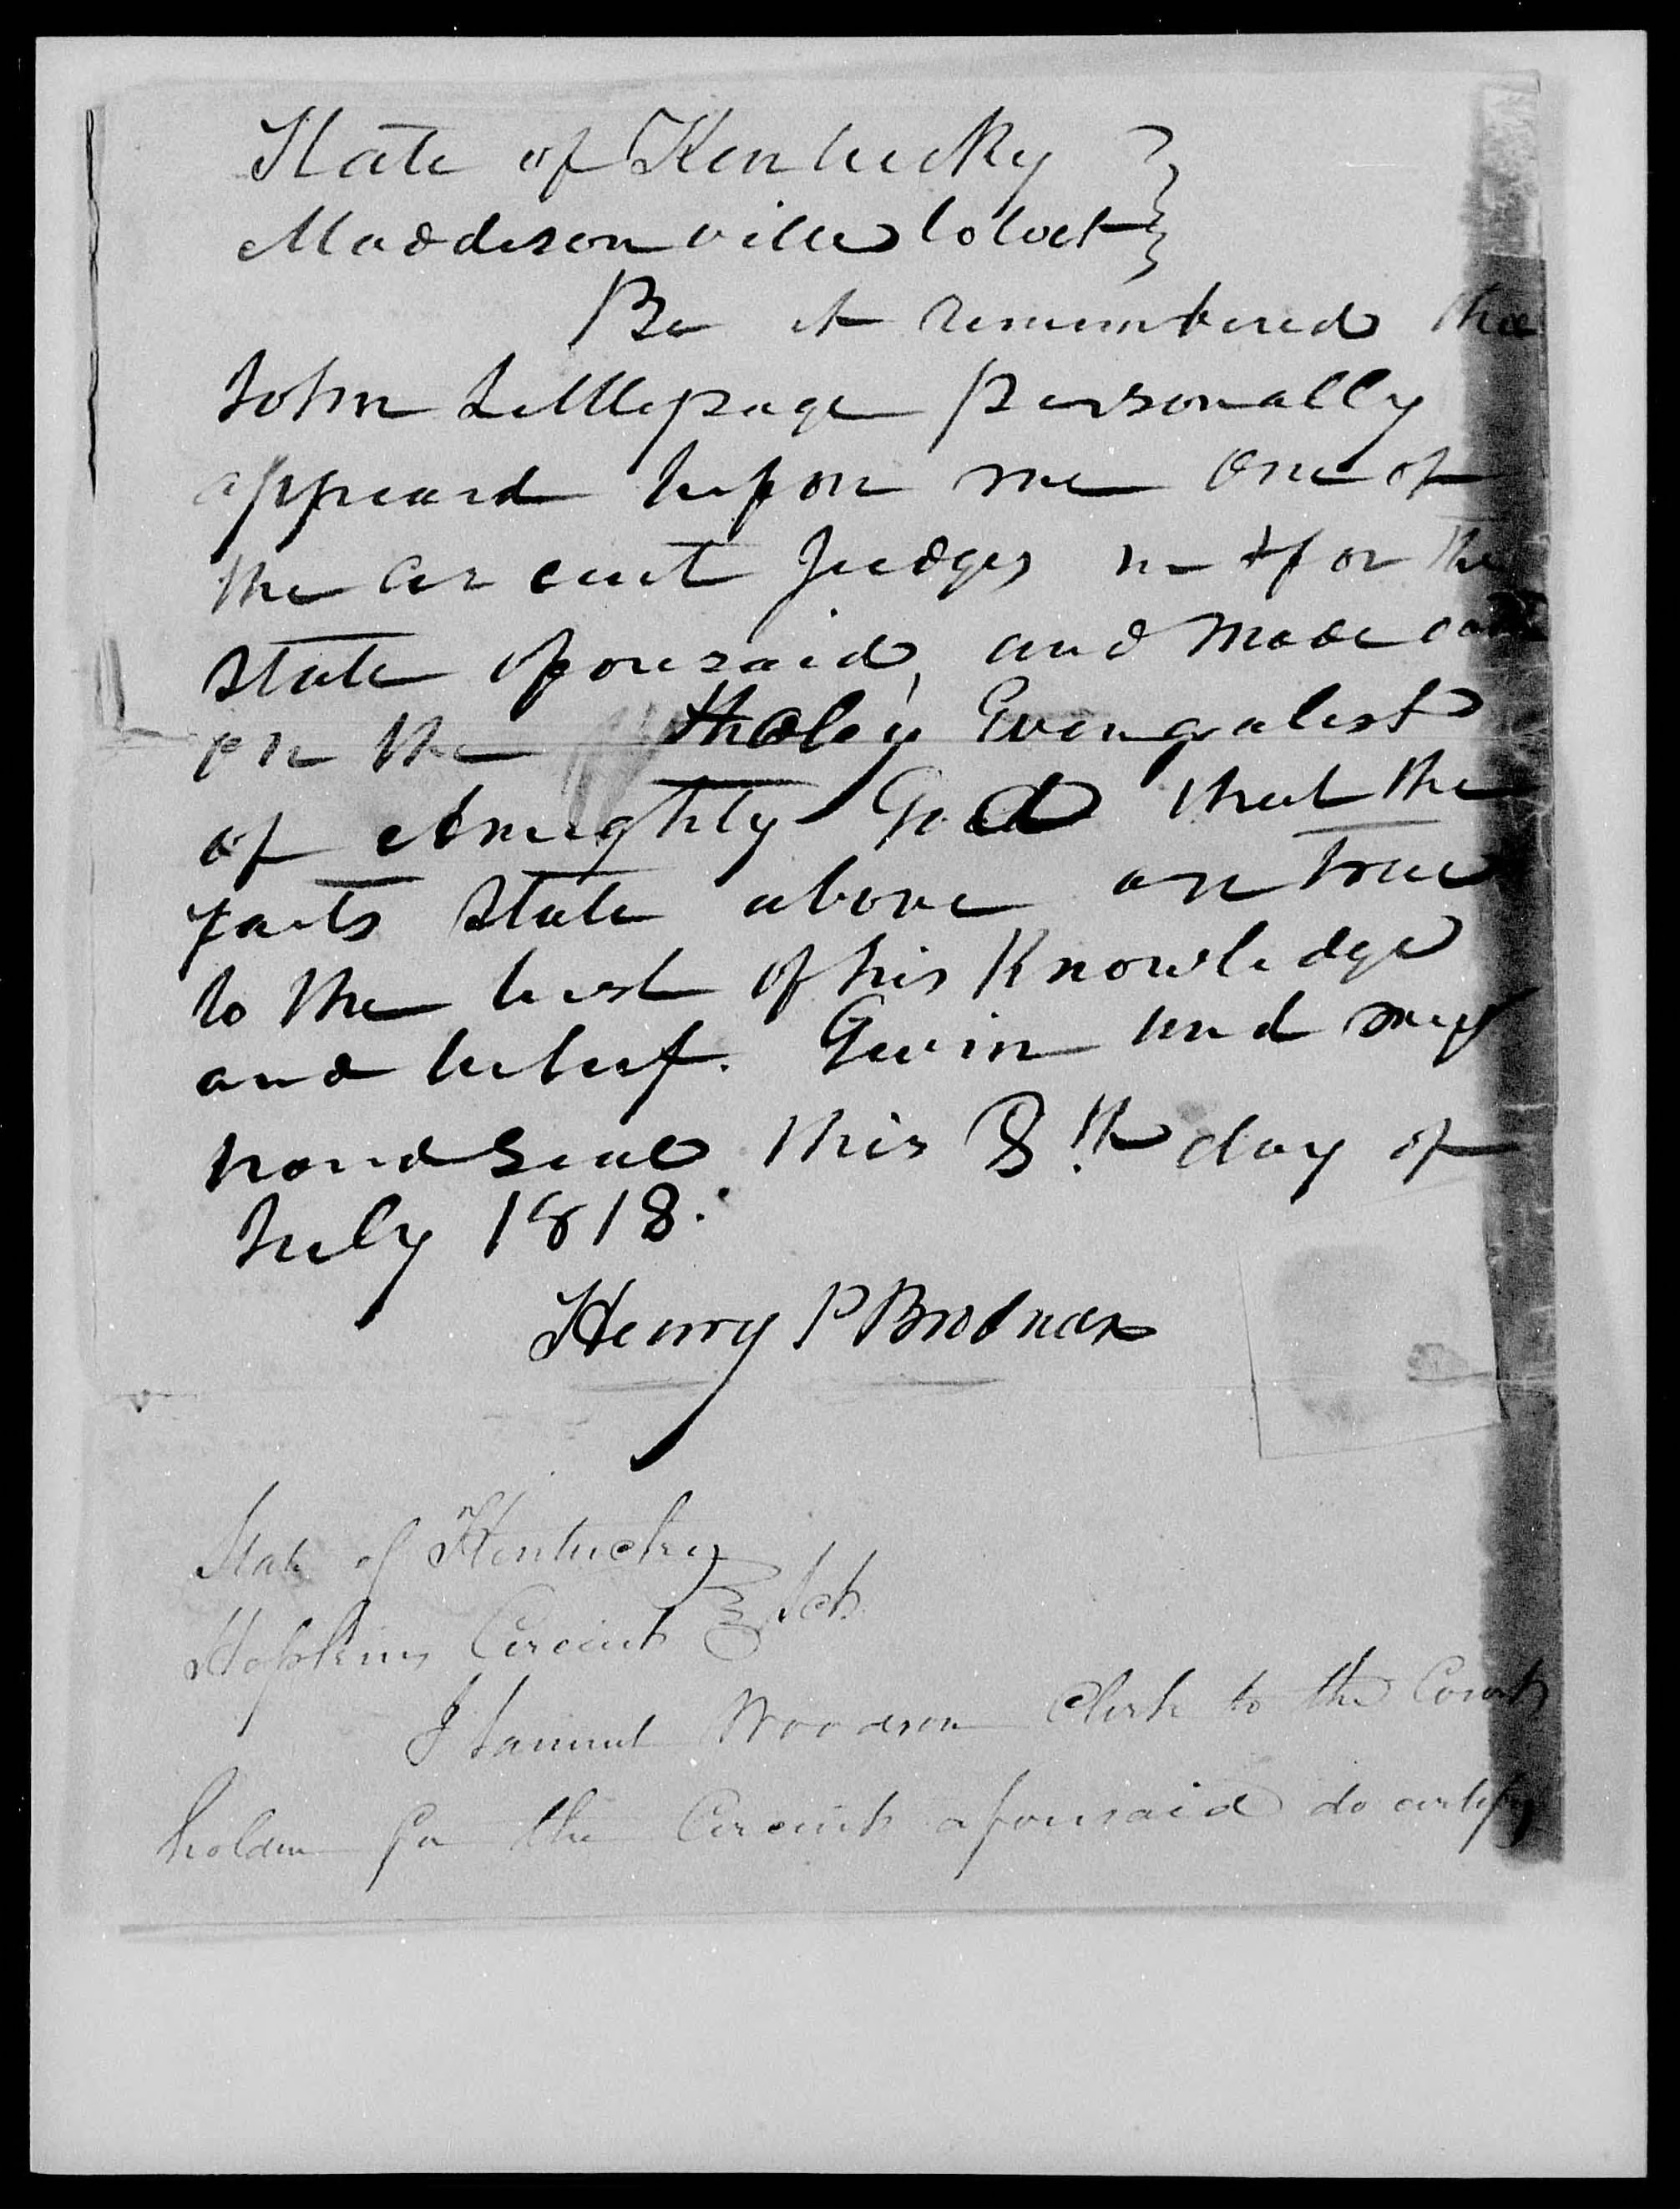 State of Kentucky
Maddisonville to wit
Be it remembered tha
John Littlepage personally
appeard before me one of
the circuit Judges in & for the
State aforesaid, and made oath
on the Holy Evangalest
of Almighty God that the
facts State above are true
to the best of his Knowledge
and beleif. Givin und my
hand Seal this 8th day of
July 1818.
Henry P Brodnax
State of Kentucky
Hopkins Circuit Sct
I Samuel Woodson Clerk to the Court
holden for the Circuit aforesaid do certify